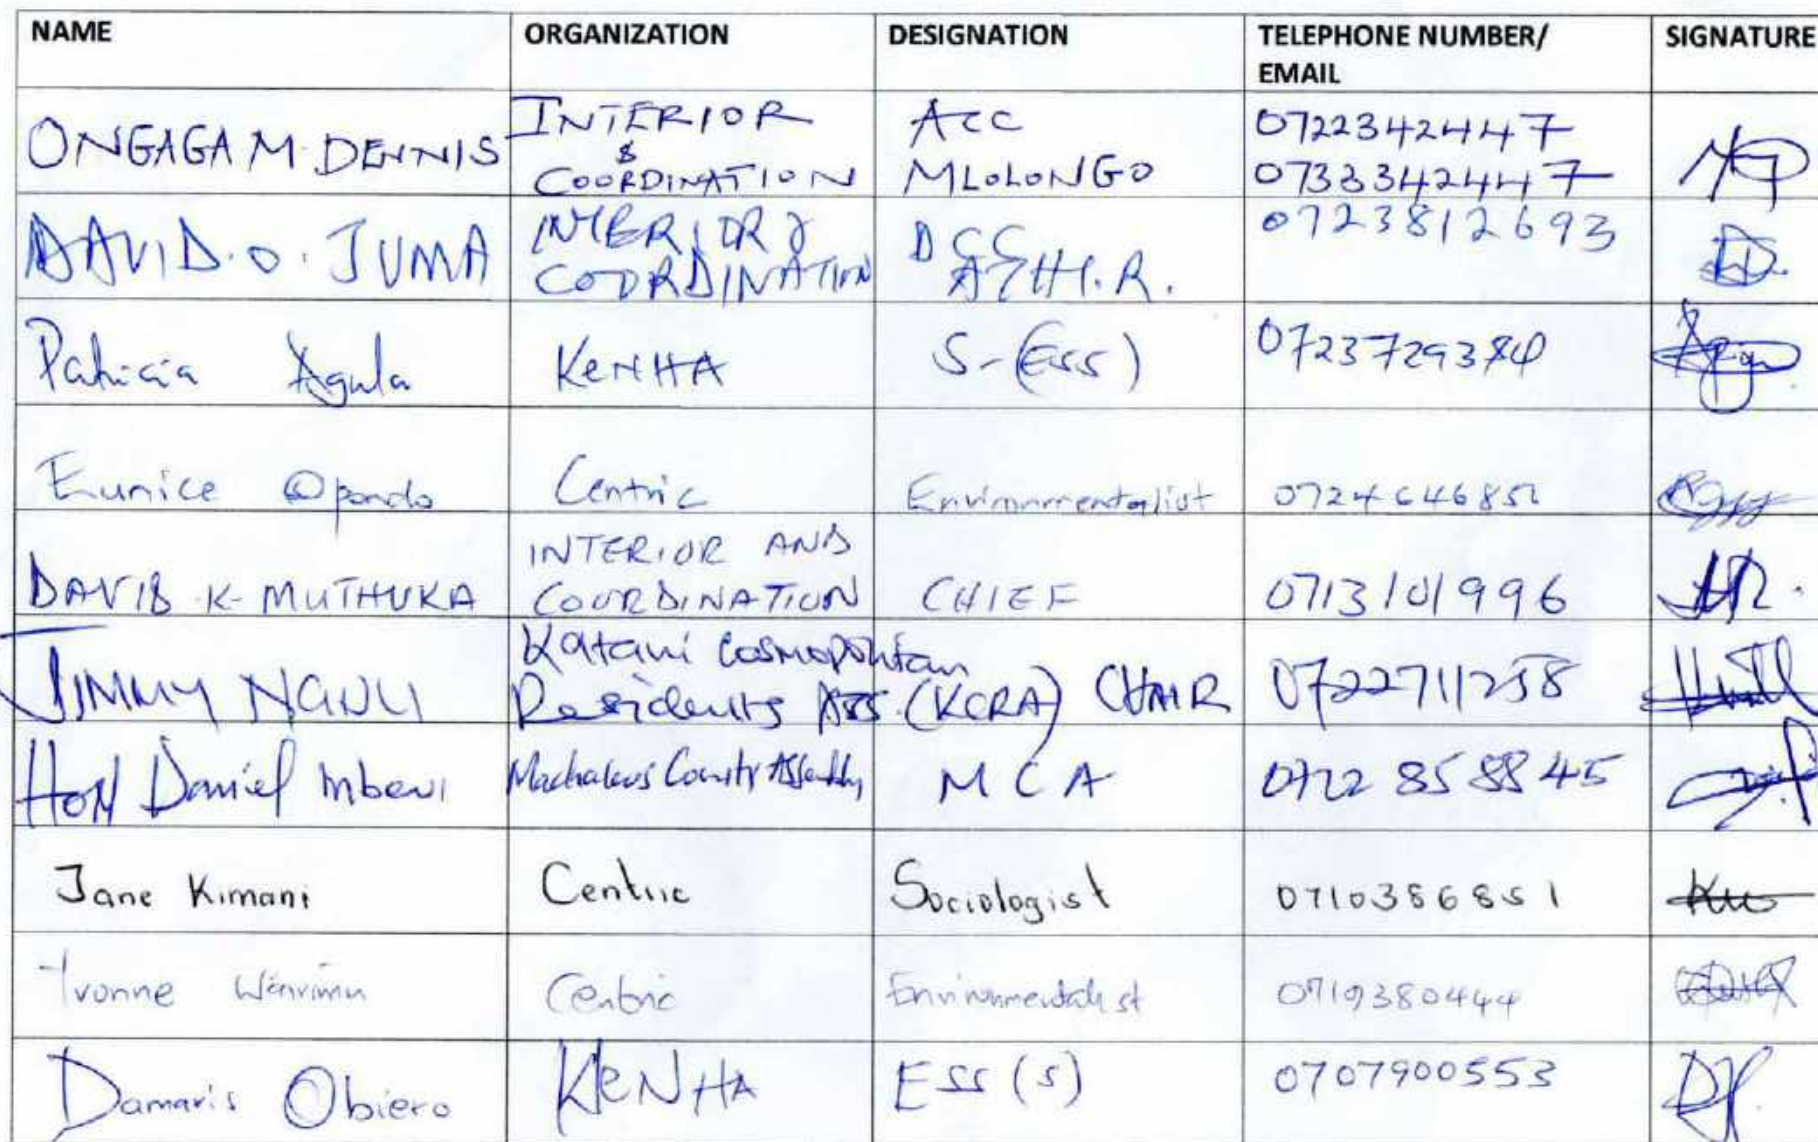 NAME ORGANIZATION DESIGNATION TELEPHONE NUMBER/ EMAIL SIGNATURE
ONGAGA M. DENNIS INTERIOR & COORDINATION ACC MLOLONGO 0722342447 0733342447
DAVID. O. JUMA INTERIOR & COORDINATION DCC ATHI. R. 0723812693
Patricia Agula KeNHA S-(ESS)
Eunice Opondo Centric Environmentalist
DAVID K. MUTHUKA INTERIOR AND COORDINATION CHIEF 0713101996
JIMMY NGULI Katani Cosmopolitan Residents Ass. (KCRA) CHAIR 0722711258
HON Daniel Mbevi Machakos County Assembly MCA 0722 858845
Jane Kimani Centric Sociologist 0710386851
Yvonne Wanrimu Centric Environmentalist 0719380444
Damaris Obiero KeNHA ESS (S) 0707900553